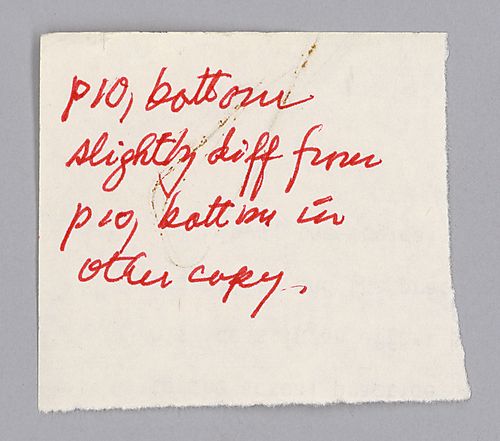 p10, bottom
slightly diff from
p10, bottom in
other copy.